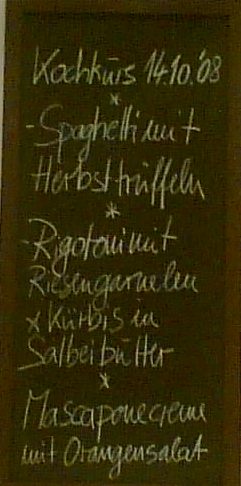 Kochkurs 14.10.'08
*
- Spaghetti mit
Herbsttrüffeln
*
- Rigatoni mit
Riesengarnelen
x Kürbis in
Salbeibutter
*
Mascaponecreme
mit Orangensalat